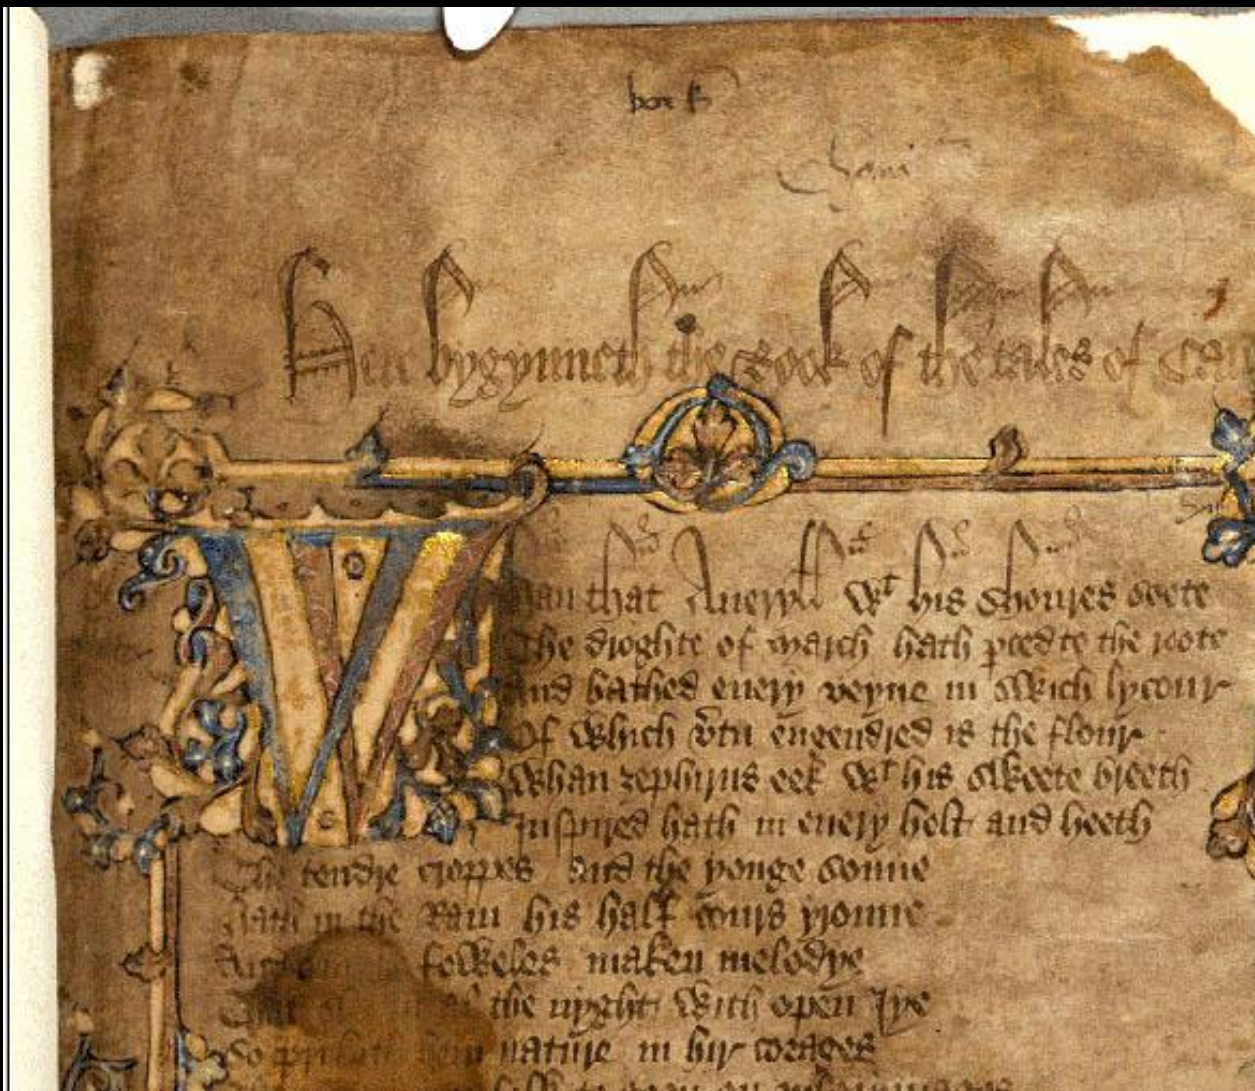 here bygynneth the Book of the tales of Cau
Whan that Aueryłł wt his shoures soote
The droghte of march hath pced to the roote
And bathed euery veyne in swich lycour
Of which vtu engendred is the flour
Whan zephirus eek wt his sweete breeth
Inspired hath in euery holt and heeth
The tendre croppes and the yonge sonne
hath in the Ram his half cours yronne
And foweles maken melodye
the nyght with open Iye
So priketh hem nature in hir corages